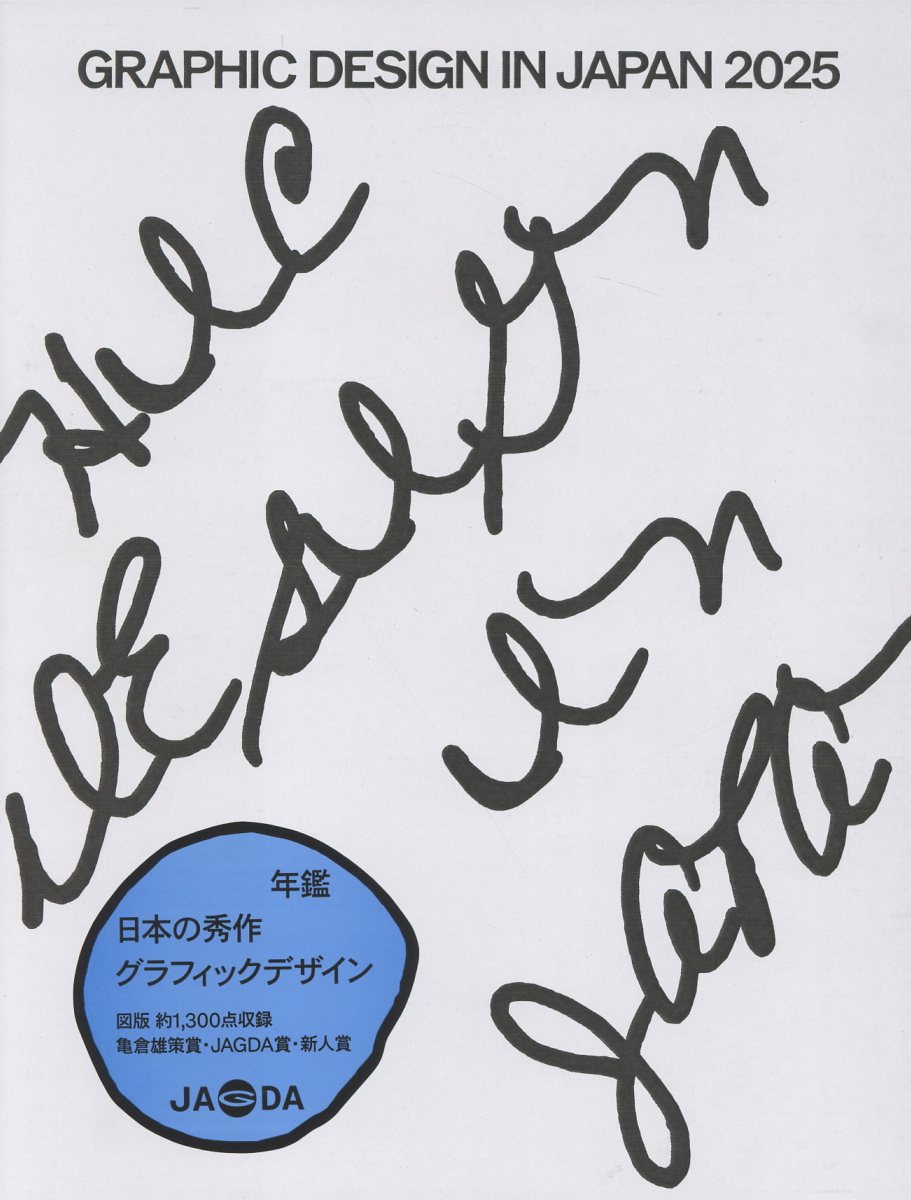 GRAPHIC DESIGN IN JAPAN 2025
HIC
DESIGN
IN
JAPA
年鑑
日本の秀作
グラフィックデザイン
図版 約1,300点収録
亀倉雄策賞・JAGDA賞・新人賞
JAGDA